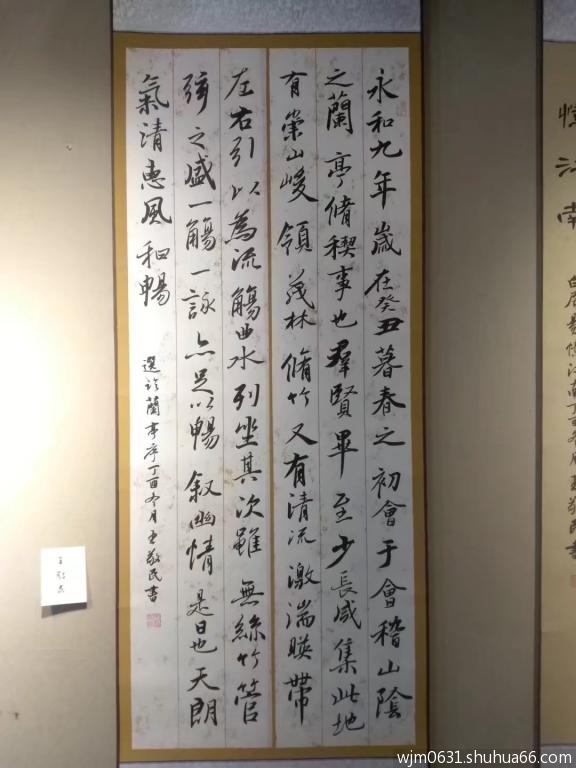 永和九年歲在癸丑暮春之初會于會稽山陰
之蘭亭脩稧事也羣賢畢至少長咸集此地
有崇山峻領茂林脩竹又有清流激湍暎帶
左右引以為流觴曲水列坐其次雖無絲竹管
弦之盛一觴一詠亦足以暢叙幽情是日也天朗
氣清惠風和暢
選於蘭亭序丁酉冬月王敬民書
王敬民
憶江南
白居易憶江南丁酉冬月王敬民書
wjm0631.shuhua66.com